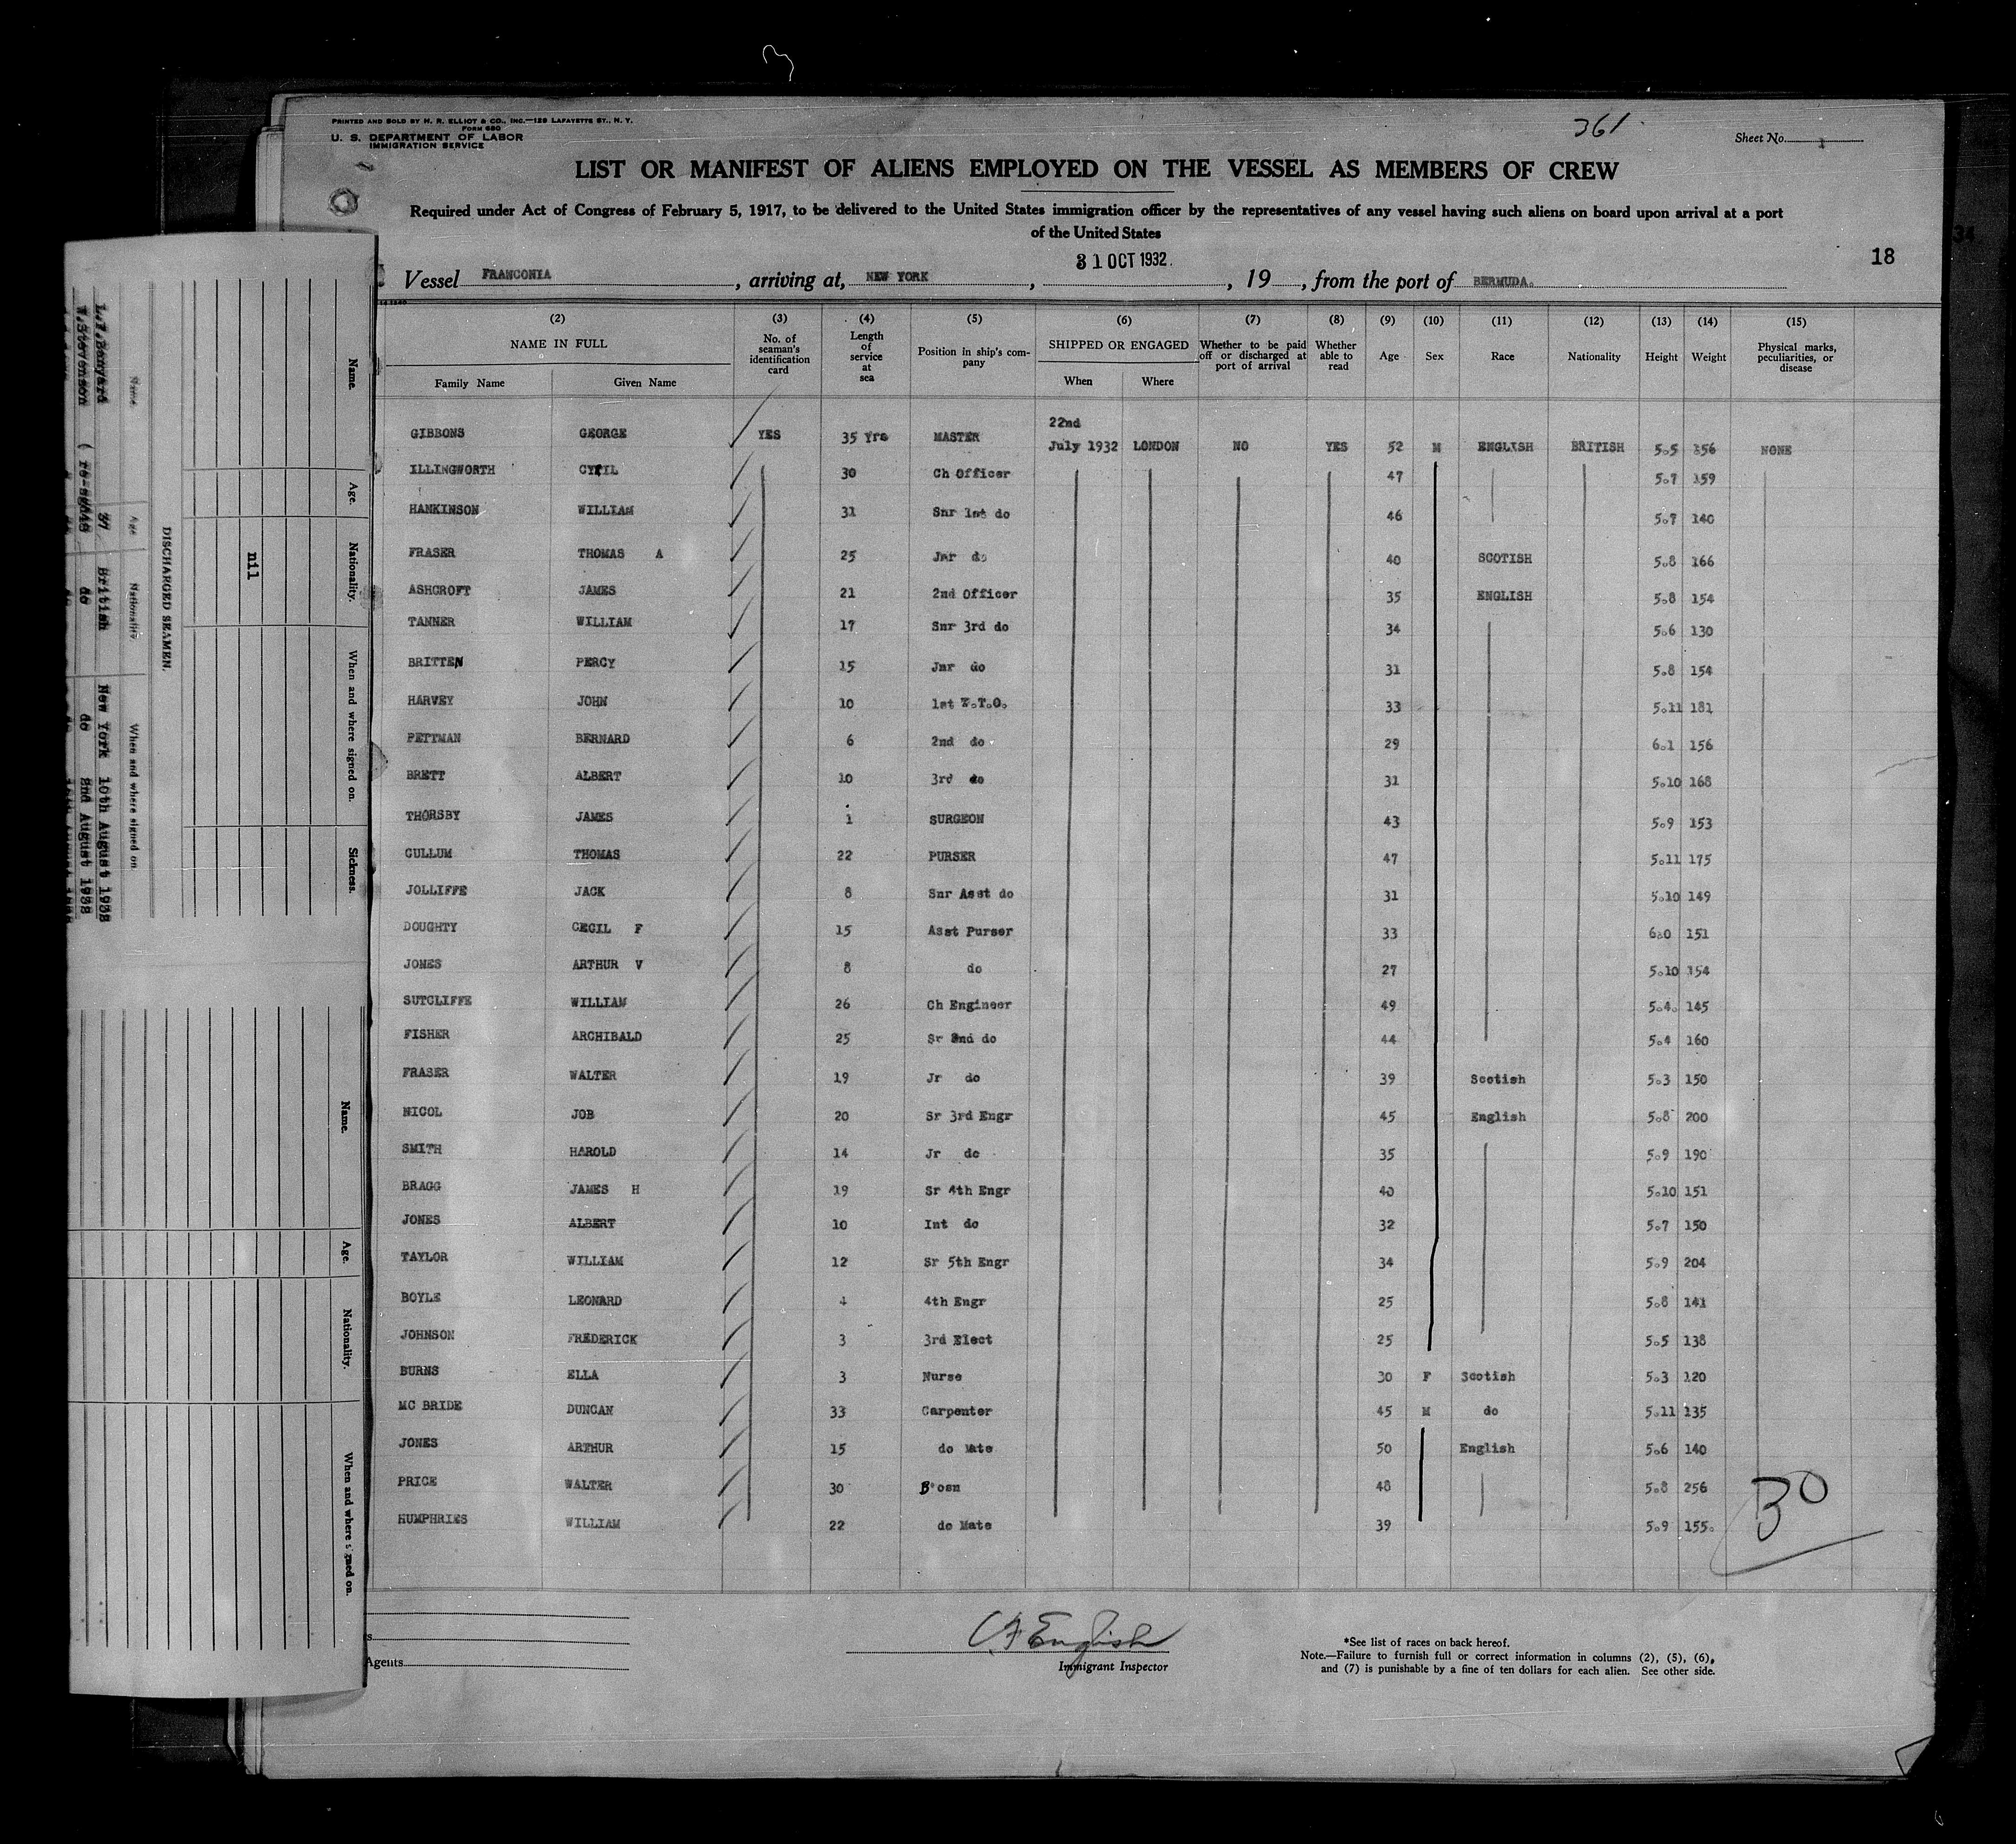 361
PRINTED AND SOLD BY H. R. ELLIOT & CO., INC.—129 LAFAYETTE ST., N. Y.
FORM 680
U. S. DEPARTMENT OF LABOR
IMMIGRATION SERVICE
Sheet No. 1
LIST OR MANIFEST OF ALIENS EMPLOYED ON THE VESSEL AS MEMBERS OF CREW
Required under Act of Congress of February 5, 1917, to be delivered to the United States immigration officer by the representatives of any vessel having such aliens on board upon arrival at a port
of the United States
34
18
31 OCT 1932.
Vessel FRANCONIA, arriving at, NEW YORK, , 19 , from the port of BERMUDA.
(2) (3) (4) (5) (6) (7) (8) (9) (10) (11) (12) (13) (14) (15)
NAME IN FULL No. of seaman's identification card Length of service at sea Position in ship's company SHIPPED OR ENGAGED Whether to be paid off or discharged at port of arrival Whether able to read Age Sex Race Nationality Height Weight Physical marks, peculiarities, or disease
Family Name Given Name When Where
22nd
GIBBONS GEORGE YES 35 Yrs MASTER July 1932 LONDON NO YES 52 M ENGLISH BRITISH 5.5 156 NONE
ILLINGWORTH CYRIL 30 Ch Officer 47 5.7 159
HANKINSON WILLIAM 31 Snr 1st do 46 5.7 140
FRASER THOMAS A 25 Jnr do 40 SCOTISH 5.8 166
ASHCROFT JAMES 21 2nd Officer 35 ENGLISH 5.8 154
TANNER WILLIAM 17 Snr 3rd do 34 5.6 130
BRITTEN PERCY 15 Jnr do 31 5.8 154
HARVEY JOHN 10 1st W.T.O. 33 5.11 181
PETTMAN BERNARD 6 2nd do 29 6.1 156
BRETT ALBERT 10 3rd do 31 5.10 168
THORSBY JAMES 1 SURGEON 43 5.9 153
CULLUM THOMAS 22 PURSER 47 5.11 175
JOLLIFFE JACK 8 Snr Asst do 31 5.10 149
DOUGHTY CECIL F 15 Asst Purser 33 6.0 151
JONES ARTHUR V 8 do 27 5.10 154
SUTCLIFFE WILLIAM 26 Ch Engineer 49 5.4. 145
FISHER ARCHIBALD 25 Sr 2nd do 44 5.4 160
FRASER WALTER 19 Jr do 39 Scotish 5.3 150
NICOL JOB 20 Sr 3rd Engr 45 English 5.8 200
SMITH HAROLD 14 Jr do 35 5.9 190
BRAGG JAMES H 19 Sr 4th Engr 40 5.10 151
JONES ALBERT 10 Int do 32 5.7 150
TAYLOR WILLIAM 12 Sr 5th Engr 34 5.9 204
BOYLE LEONARD 4 4th Engr 25 5.8 141
JOHNSON FREDERICK 3 3rd Elect 25 5.5 138
BURNS ELLA 3 Nurse 30 F Scotish 5.3 120
MC BRIDE DUNCAN 33 Carpenter 45 M do 5.11 135
JONES ARTHUR 15 do Mate 50 English 5.6 140
PRICE WALTER 30 B'osn 48 5.8 256
HUMPHRIES WILLIAM 22 do Mate 39 5.9 155.
30
Agents
C A English
Immigrant Inspector
*See list of races on back hereof.
Note.—Failure to furnish full or correct information in columns (2), (5), (6), and (7) is punishable by a fine of ten dollars for each alien. See other side.
Name. Age. Nationality. When and where signed on. Sickness.
nil
DISCHARGED SEAMEN.
Name Age Nationality When and where signed on
37 British New York 10th August 1932
W.Stevenson do do 2nd August 1932
Name. Age. Nationality. When and where signed on.